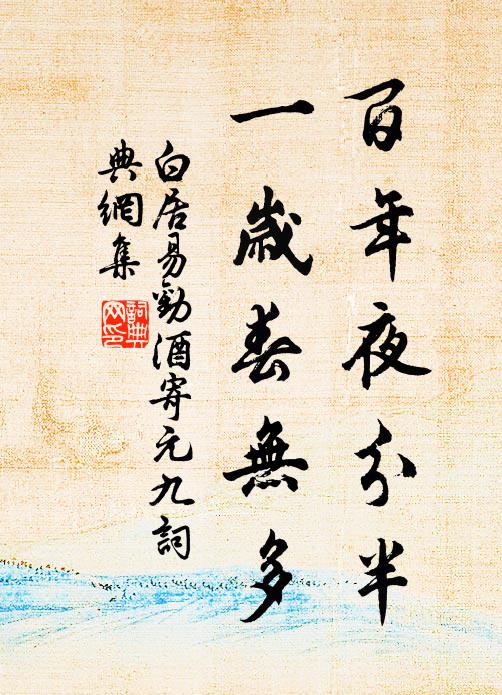 百年夜分半
一歲春無多
白居易勸酒寄元九詞
典網集
詞典
网印